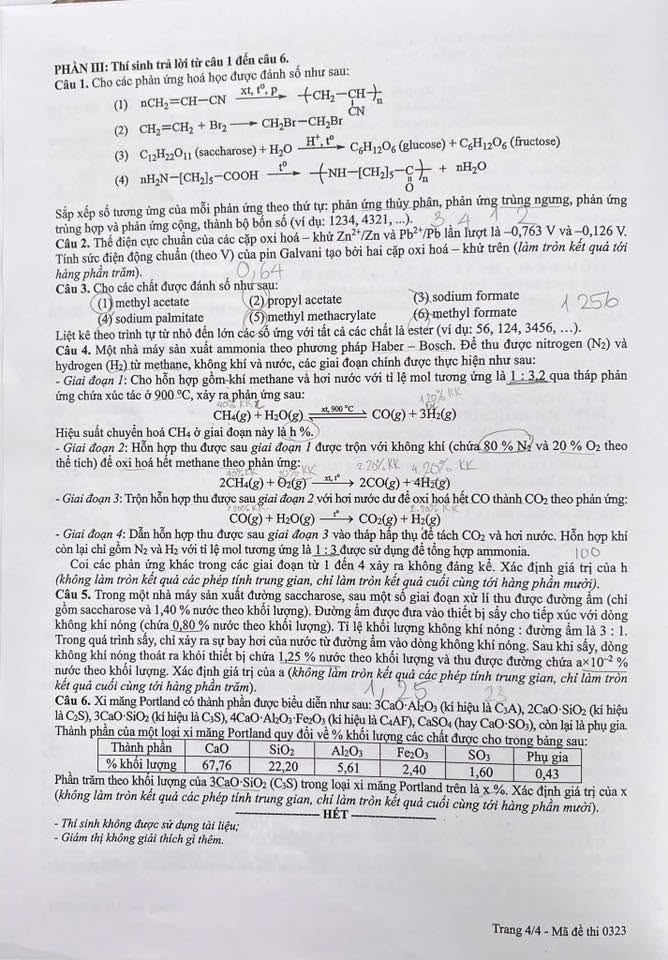 PHẦN III: Thí sinh trả lời từ câu 1 đến câu 6.
Câu 1. Cho các phản ứng hoá học được đánh số như sau:
(1) nCH₂=CH–CN xt, t⁰, p ⟶ –(CH₂–CH(CN))–ₙ
(2) CH₂=CH₂ + Br₂ ⟶ CH₂Br–CH₂Br
(3) C₁₂H₂₂O₁₁ (saccharose) + H₂O H⁺, t⁰ ⟶ C₆H₁₂O₆ (glucose) + C₆H₁₂O₆ (fructose)
(4) nH₂N–[CH₂]₅–COOH t⁰ ⟶ –(NH–[CH₂]₅–C(=O))–ₙ + nH₂O
Sắp xếp số tương ứng của mỗi phản ứng theo thứ tự: phản ứng thủy phân, phản ứng trùng ngưng, phản ứng
trùng hợp và phản ứng cộng, thành bộ bốn số (ví dụ: 1234, 4321, ...). 3 4 1 2
Câu 2. Thế điện cực chuẩn của các cặp oxi hoá – khử Zn²⁺/Zn và Pb²⁺/Pb lần lượt là –0,763 V và –0,126 V.
Tính sức điện động chuẩn (theo V) của pin Galvani tạo bởi hai cặp oxi hoá – khử trên (làm tròn kết quả tới
hàng phần trăm). 0,64
Câu 3. Cho các chất được đánh số như sau:
(1) methyl acetate (2) propyl acetate (3) sodium formate 1256
(4) sodium palmitate (5) methyl methacrylate (6) methyl formate
Liệt kê theo trình tự từ nhỏ đến lớn các số ứng với tất cả các chất là ester (ví dụ: 56, 124, 3456, …).
Câu 4. Một nhà máy sản xuất ammonia theo phương pháp Haber – Bosch. Để thu được nitrogen (N₂) và
hydrogen (H₂) từ methane, không khí và nước, các giai đoạn chính được thực hiện như sau:
- Giai đoạn 1: Cho hỗn hợp gồm khí methane và hơi nước với tỉ lệ mol tương ứng là 1 : 3,2 qua tháp phản
ứng chứa xúc tác ở 900 °C, xảy ra phản ứng sau:
CH₄(g) + H₂O(g) xt, 900 °C ⇌ CO(g) + 3H₂(g)
Hiệu suất chuyển hoá CH₄ ở giai đoạn này là h %.
- Giai đoạn 2: Hỗn hợp thu được sau giai đoạn 1 được trộn với không khí (chứa 80 % N₂ và 20 % O₂ theo
thể tích) để oxi hoá hết methane theo phản ứng:
2CH₄(g) + O₂(g) xt, t⁰ ⟶ 2CO(g) + 4H₂(g)
- Giai đoạn 3: Trộn hỗn hợp thu được sau giai đoạn 2 với hơi nước dư để oxi hoá hết CO thành CO₂ theo phản ứng:
CO(g) + H₂O(g) t⁰ ⟶ CO₂(g) + H₂(g)
- Giai đoạn 4: Dẫn hỗn hợp thu được sau giai đoạn 3 vào tháp hấp thụ để tách CO₂ và hơi nước. Hỗn hợp khí
còn lại chỉ gồm N₂ và H₂ với tỉ lệ mol tương ứng là 1 : 3 được sử dụng để tổng hợp ammonia. 100
Coi các phản ứng khác trong các giai đoạn từ 1 đến 4 xảy ra không đáng kể. Xác định giá trị của h
(không làm tròn kết quả các phép tính trung gian, chỉ làm tròn kết quả cuối cùng tới hàng phần mười).
Câu 5. Trong một nhà máy sản xuất đường saccharose, sau một số giai đoạn xử lí thu được đường ẩm (chỉ
gồm saccharose và 1,40 % nước theo khối lượng). Đường ẩm được đưa vào thiết bị sấy cho tiếp xúc với dòng
không khí nóng (chứa 0,80 % nước theo khối lượng). Tỉ lệ khối lượng không khí nóng : đường ẩm là 3 : 1.
Trong quá trình sấy, chỉ xảy ra sự bay hơi của nước từ đường ẩm vào dòng không khí nóng. Sau khi sấy, dòng
không khí nóng thoát ra khỏi thiết bị chứa 1,25 % nước theo khối lượng và thu được đường chứa a×10⁻² %
nước theo khối lượng. Xác định giá trị của a (không làm tròn kết quả các phép tính trung gian, chỉ làm tròn
kết quả cuối cùng tới hàng phần trăm). 1,25 23
Câu 6. Xi măng Portland có thành phần được biểu diễn như sau: 3CaO·Al₂O₃ (kí hiệu là C₃A), 2CaO·SiO₂ (kí hiệu
là C₂S), 3CaO·SiO₂ (kí hiệu là C₃S), 4CaO·Al₂O₃·Fe₂O₃ (kí hiệu là C₄AF), CaSO₄ (hay CaO·SO₃), còn lại là phụ gia.
Thành phần của một loại xi măng Portland quy đổi về % khối lượng các chất được cho trong bảng sau:
Thành phần CaO SiO₂ Al₂O₃ Fe₂O₃ SO₃ Phụ gia
% khối lượng 67,76 22,20 5,61 2,40 1,60 0,43
Phần trăm theo khối lượng của 3CaO·SiO₂ (C₃S) trong loại xi măng Portland trên là x %. Xác định giá trị của x
(không làm tròn kết quả các phép tính trung gian, chỉ làm tròn kết quả cuối cùng tới hàng phần mười).
HẾT
- Thí sinh không được sử dụng tài liệu;
- Giám thị không giải thích gì thêm.
Trang 4/4 - Mã đề thi 0323